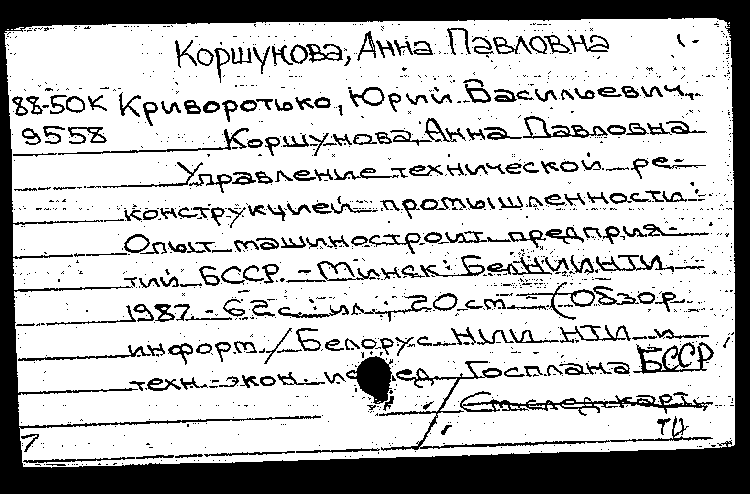 Коршунова, Анна Павловна
88-50К Криворотько, Юрий Васильевич,
9558 Коршунова, Анна Павловна
Управление технической ре-
конструкцией промышленности:
Опыт машиностроит. предприя-
тий БССР. - Минск: БелНИИНТИ,
1987. - 62 с.: ил.; 20 см. - (Обзор.
информ. / Белорус. НИИ НТИ и
техн.-экон. исслед. Госплана БССР
См. след. карт.